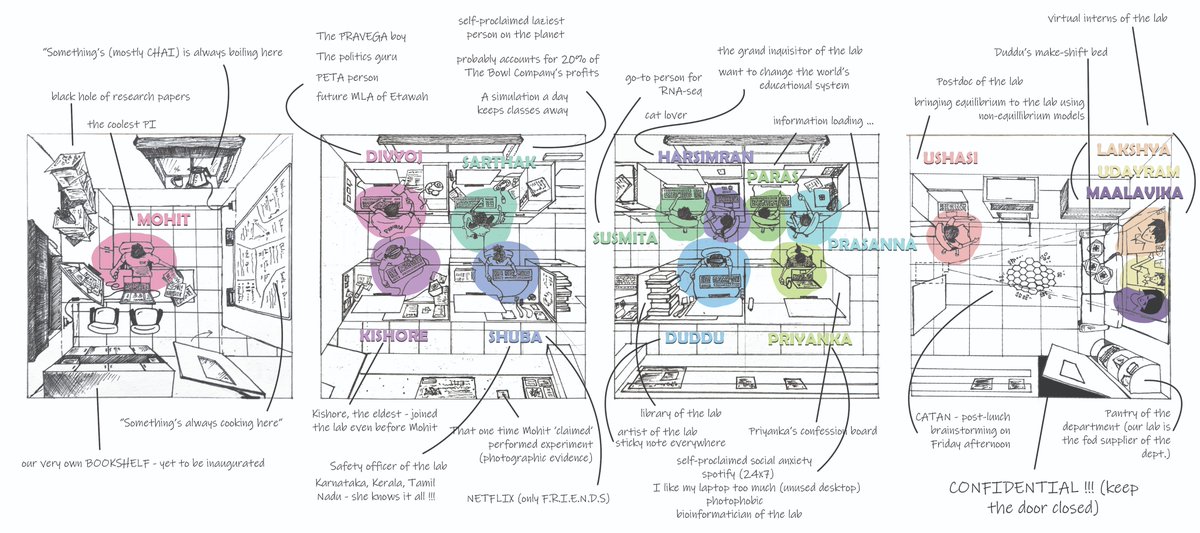 "Something's (mostly CHAI) is always boiling here"
black hole of research papers
the coolest PI
MOHIT
"Something's always cooking here"
our very own BOOKSHELF - yet to be inaugurated
The PRAVEGA boy
The politics guru
PETA person
future MLA of Etawah
self-proclaimed laziest
person on the planet
probably accounts for 20% of
The Bowl Company's profits
A simulation a day
keeps classes away
DIVYOJ
SARTHAK
KISHORE
SHUBA
Kishore, the eldest - joined
the lab even before Mohit
That one time Mohit 'claimed'
performed experiment
(photographic evidence)
Safety officer of the lab
Karnataka, Kerala, Tamil
Nadu - she knows it all !!!
NETFLIX (only F.R.I.E.N.D.S)
go-to person for
RNA-seq
cat lover
the grand inquisitor of the lab
want to change the world's
educational system
information loading ...
HARSIMRAN
PARAS
SUSMITA
PRASANNA
DUDDU
PRIYANKA
library of the lab
artist of the lab
sticky note everywhere
Priyanka's confession board
self-proclaimed social anxiety
spotify (24x7)
I like my laptop too much (unused desktop)
photophobic
bioinformatician of the lab
virtual interns of the lab
Duddu's make-shift bed
Postdoc of the lab
bringing equilibrium to the lab using
non-equillibrium models
USHASI
LAKSHYA
UDAYRAM
MAALAVIKA
CATAN - post-lunch
brainstorming on
Friday afternoon
Pantry of the
department (our lab is
the fod supplier of the
dept.)
CONFIDENTIAL !!! (keep
the door closed)